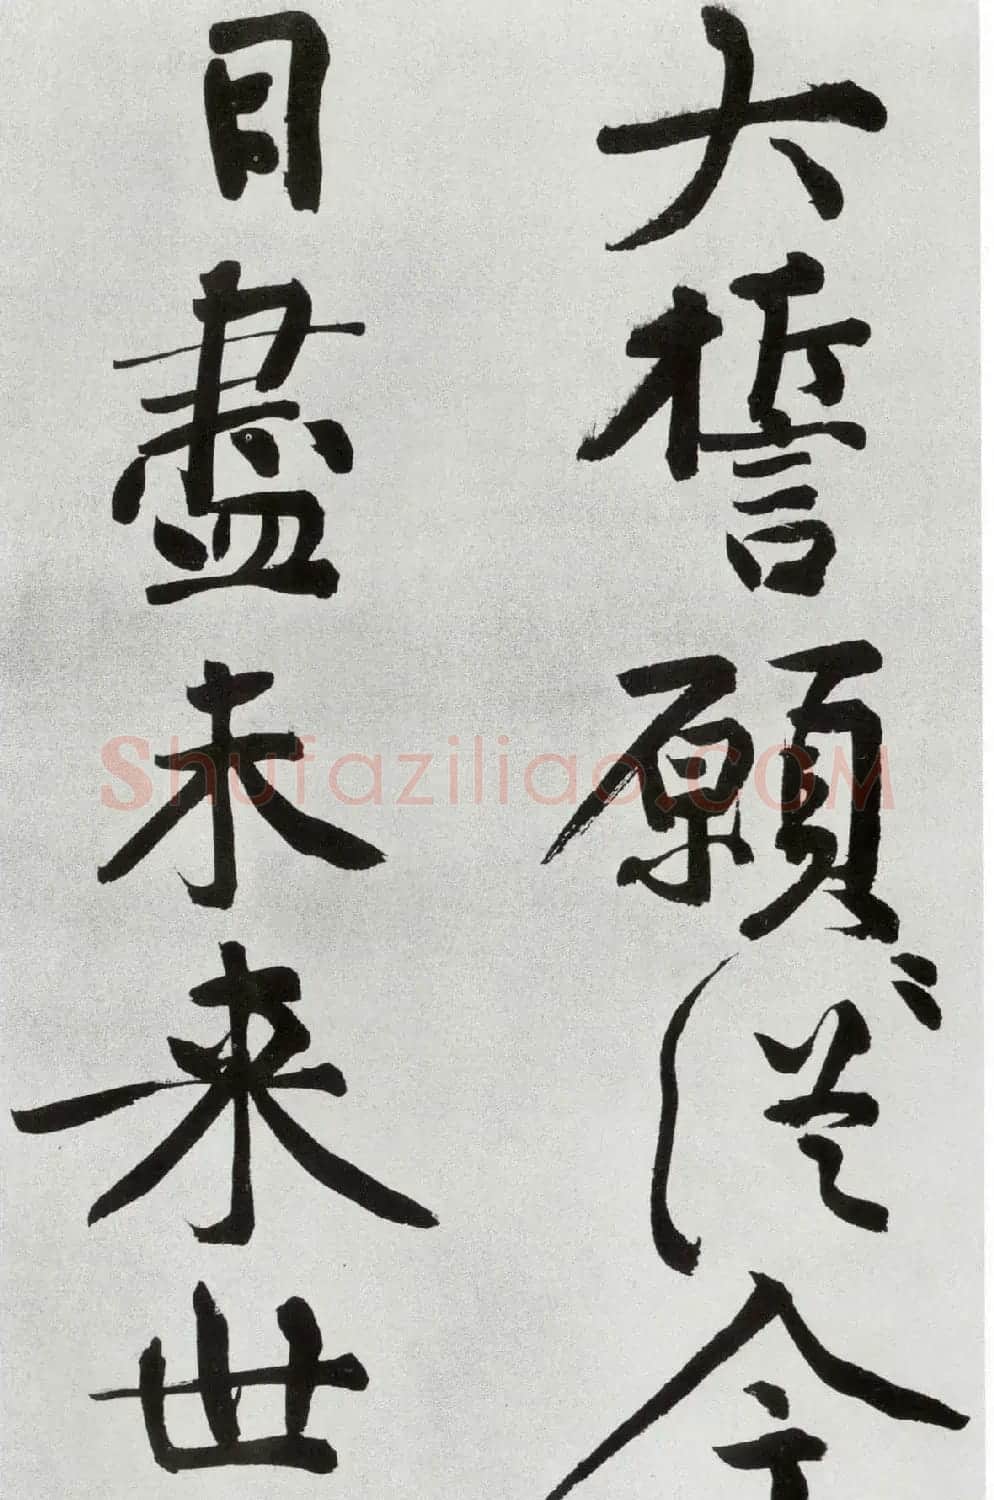 大誓願從今
日盡未来世
Shufaziliao.COM